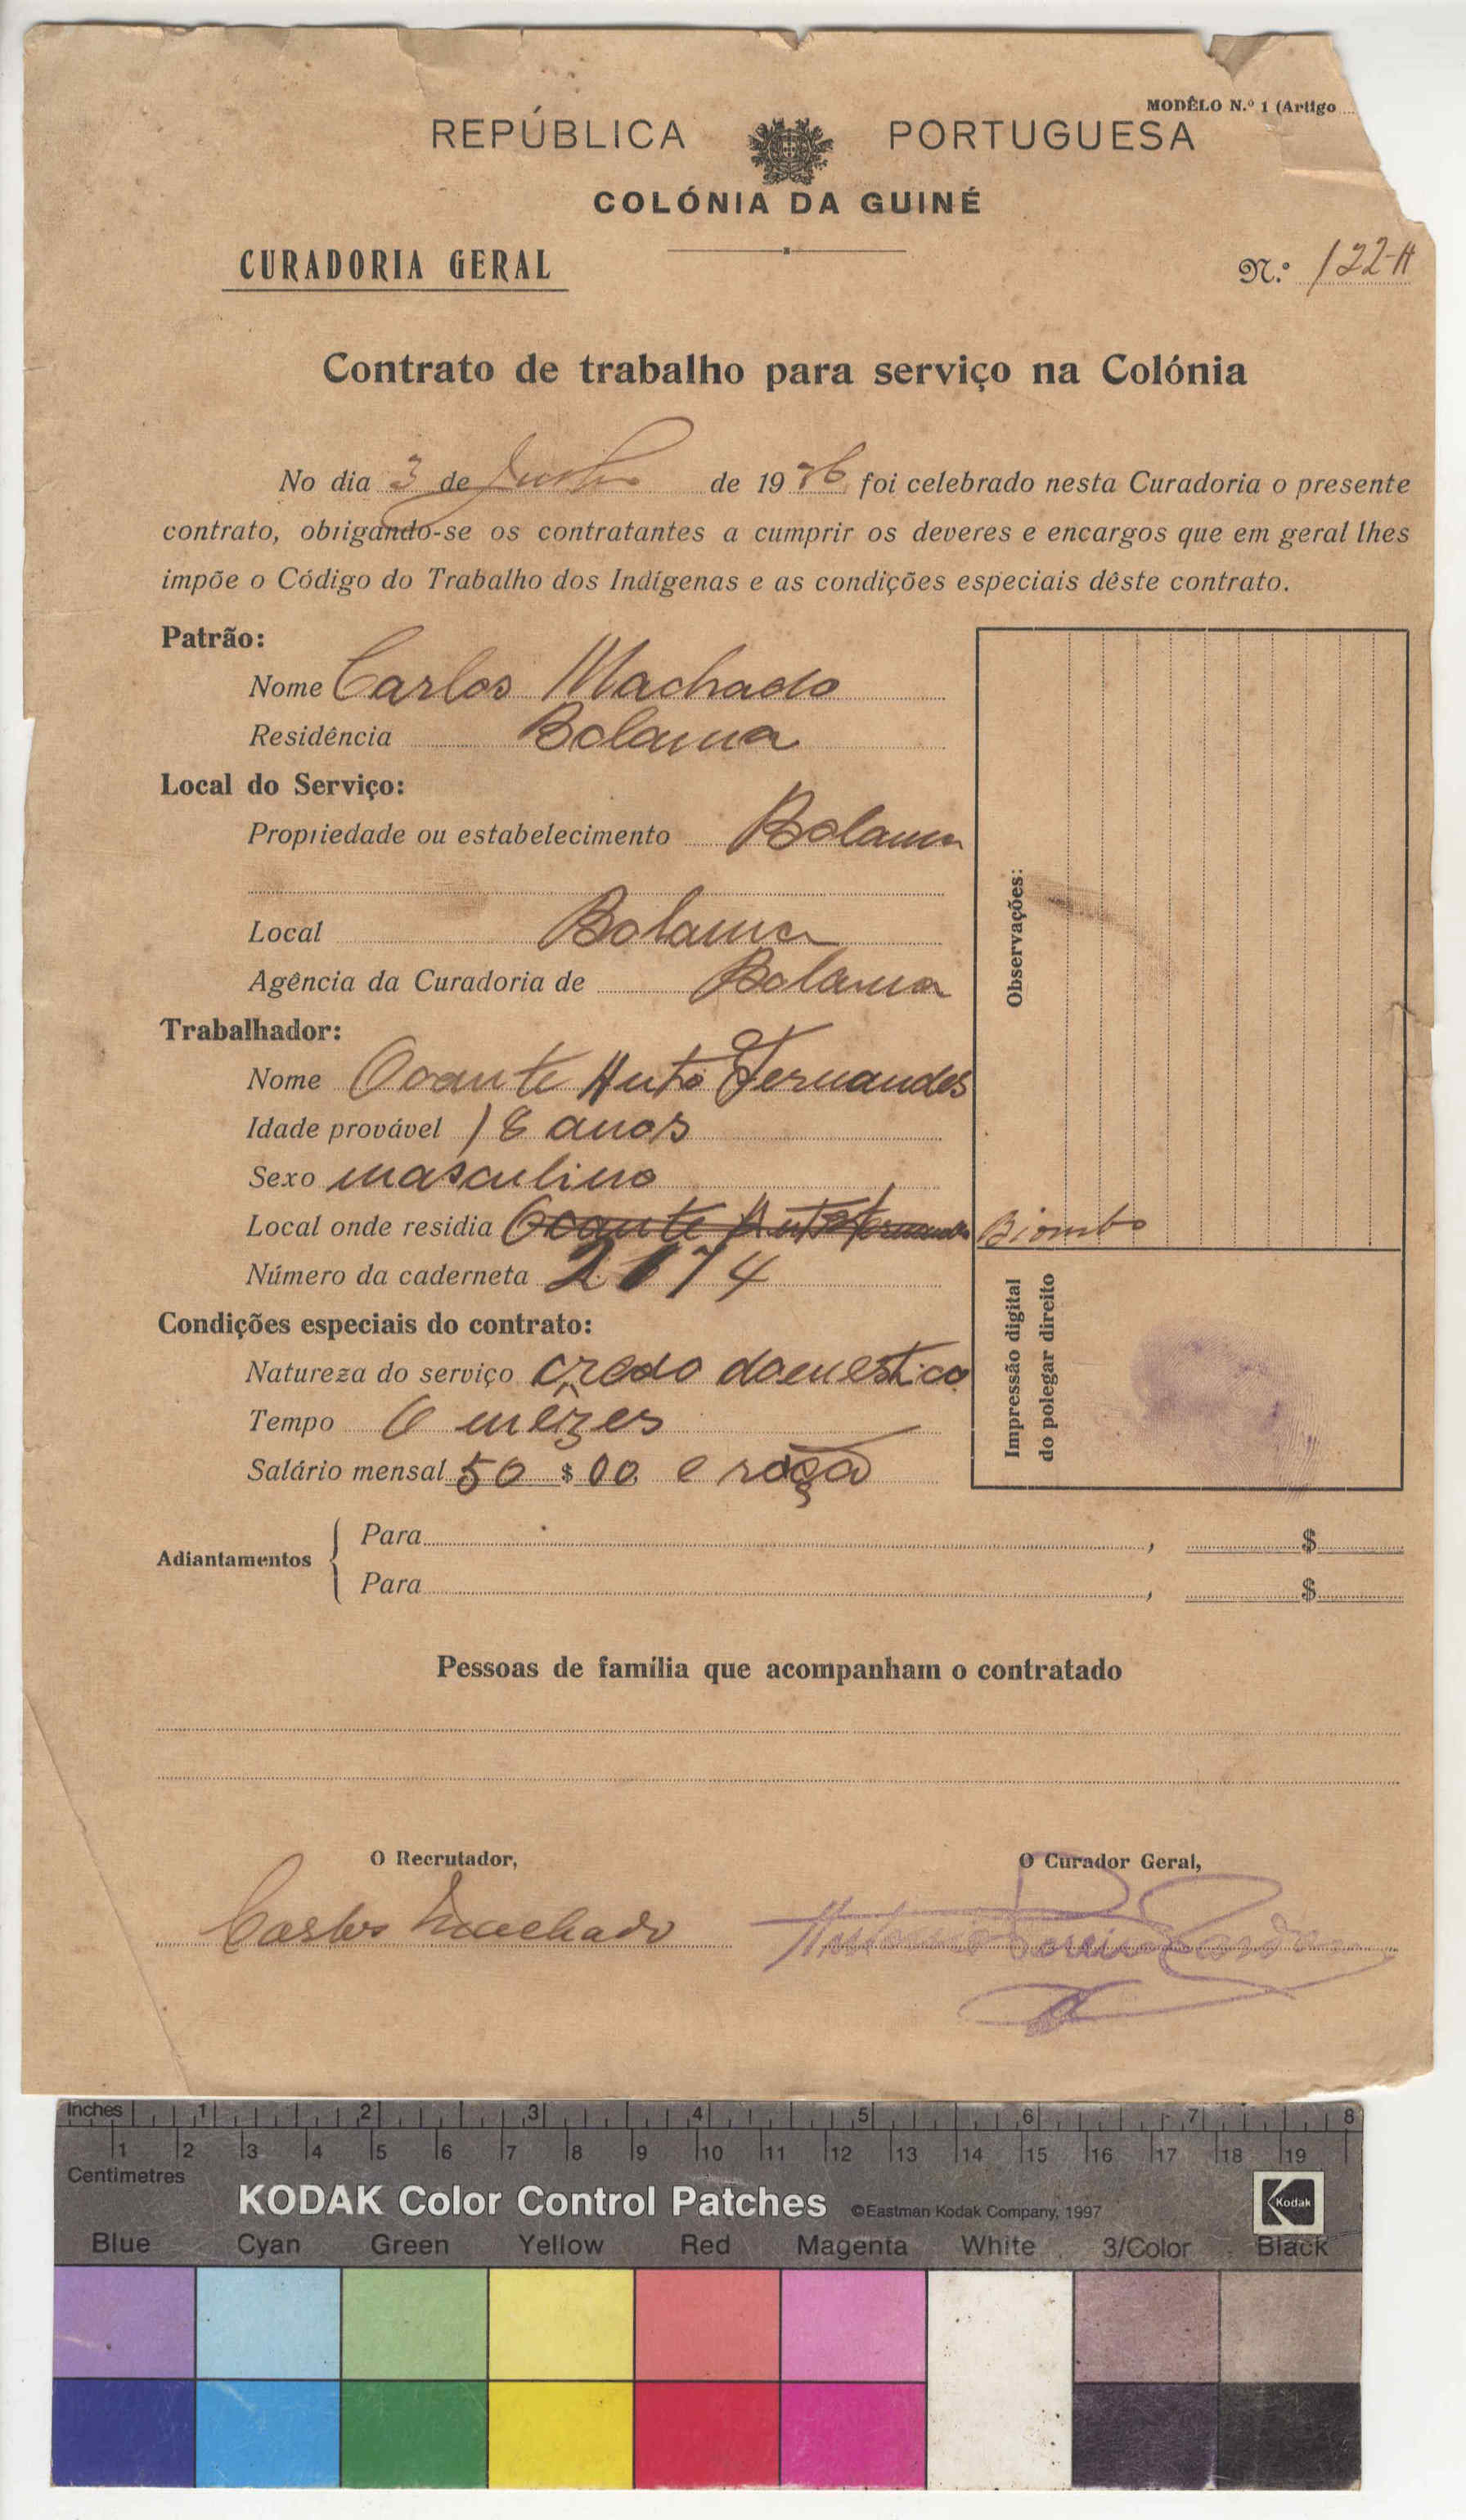 MODÊLO N.º 1 (Artigo
REPÚBLICA PORTUGUESA
COLÓNIA DA GUINÉ
CURADORIA GERAL
N.º 122-A
Contrato de trabalho para serviço na Colónia
No dia 3 de de 1936 foi celebrado nesta Curadoria o presente
contrato, obrigando-se os contratantes a cumprir os deveres e encargos que em geral lhes
impõe o Código do Trabalho dos Indígenas e as condições especiais dêste contrato.
Patrão:
Nome Carlos Machado
Residência Bolama
Local do Serviço:
Propriedade ou estabelecimento Bolama
Local Bolama
Agência da Curadoria de Bolama
Observações:
Trabalhador:
Nome Ocante Fernandes
Idade provável 18 anos
Sexo masculino
Local onde residia Ocante Biombo
Número da caderneta 2174
Condições especiais do contrato:
Natureza do serviço creado domestico
Tempo 6 mêzes
Salário mensal 50 $ 00 e
Impressão digital
do polegar direito
Adiantamentos
Para , $
Para , $
Pessoas de família que acompanham o contratado
O Recrutador,
O Curador Geral,
Carlos Machado
Antonio Pereira Cardoso
Inches 1 2 3 4 5 6 7 8
1 2 3 4 5 6 7 8 9 10 11 12 13 14 15 16 17 18 19
Centimetres
KODAK Color Control Patches ©Eastman Kodak Company, 1997
Kodak
Blue Cyan Green Yellow Red Magenta White 3/Color Black